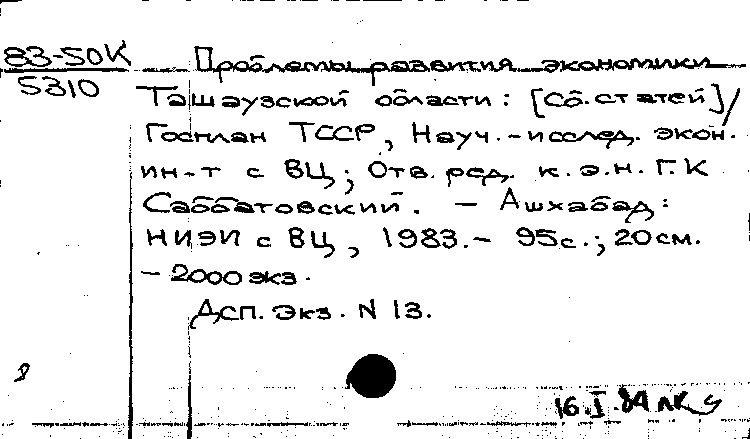 83-50К
5310
Проблемы развития экономики
Ташаузской области: [Сб. статей]/
Госплан ТССР, Науч.-исслед. экон.
ин-т с ВЦ; Отв. ред. к.э.н. Г.К
Саббатовский. — Ашхабад:
НИЭИ с ВЦ, 1983.- 95с.; 20см.
- 2000 экз.
Дсп. Экз. N 13.
8
16.I.84